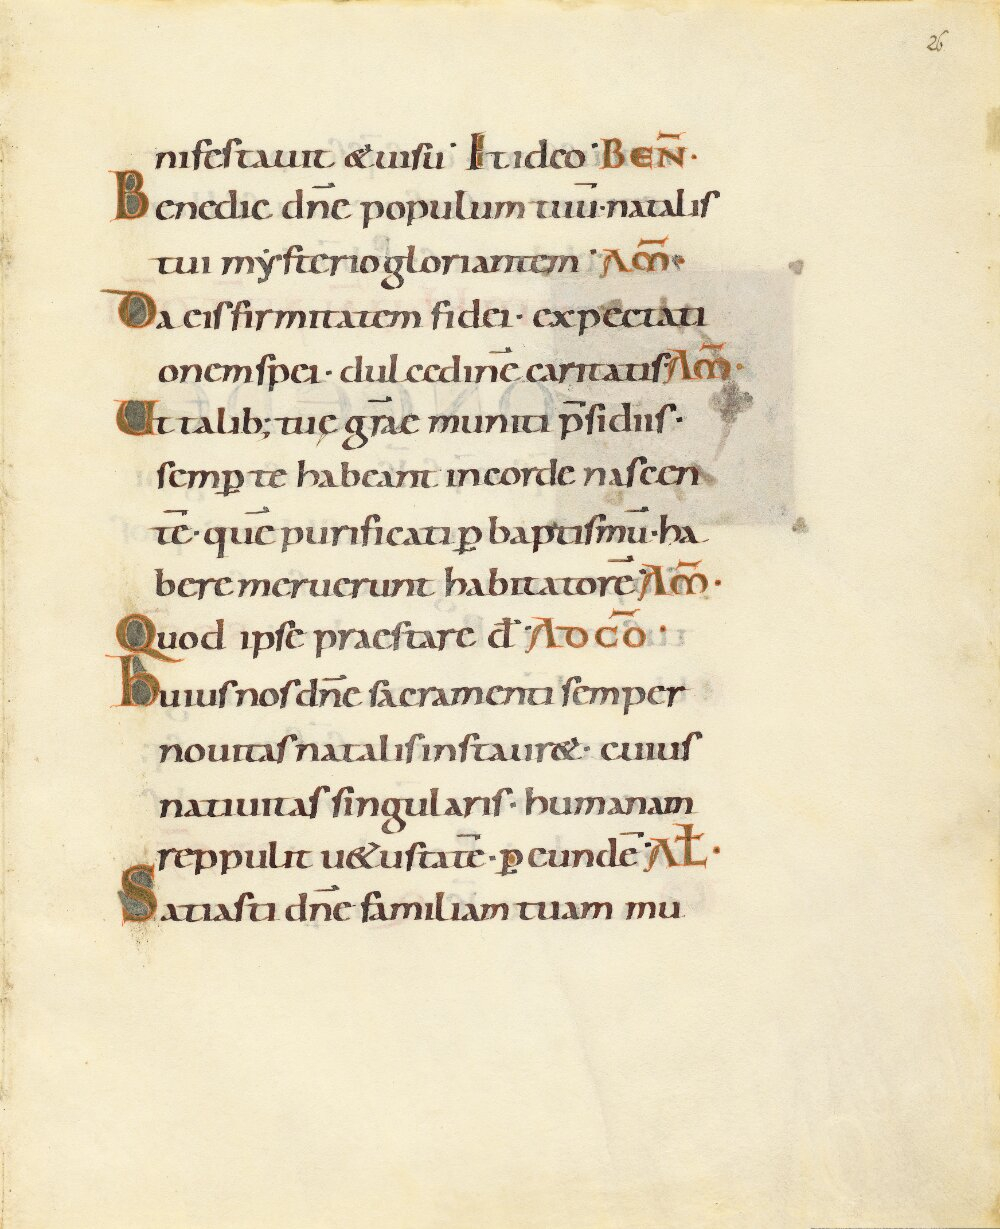 26
nifestavit & visu. Et ideo. BEÑ.
Benedic dñe populum tuū. natalis
tui mẏsterio gloriantem. AM̄.
Da eis firmitatem fidei. expectati
onem spei. dulcedinē caritatis. AM̄.
Ut talib; tuę grāe muniti p̄sidiis.
semp te habeant in corde nascen
tē. quē purificati ꝑ baptismū. ha
bere meruerunt habitatorē. AM̄.
Quod ipse praestare đ. AD CŌ.
Huius nos dñe sacramenti semper
novitas natalis instaur&. cuius
nativitas singularis. humanam
reppulit v&ustatē. ꝑ eundē. AŁ.
Satiasti dñe familiam tuam mu